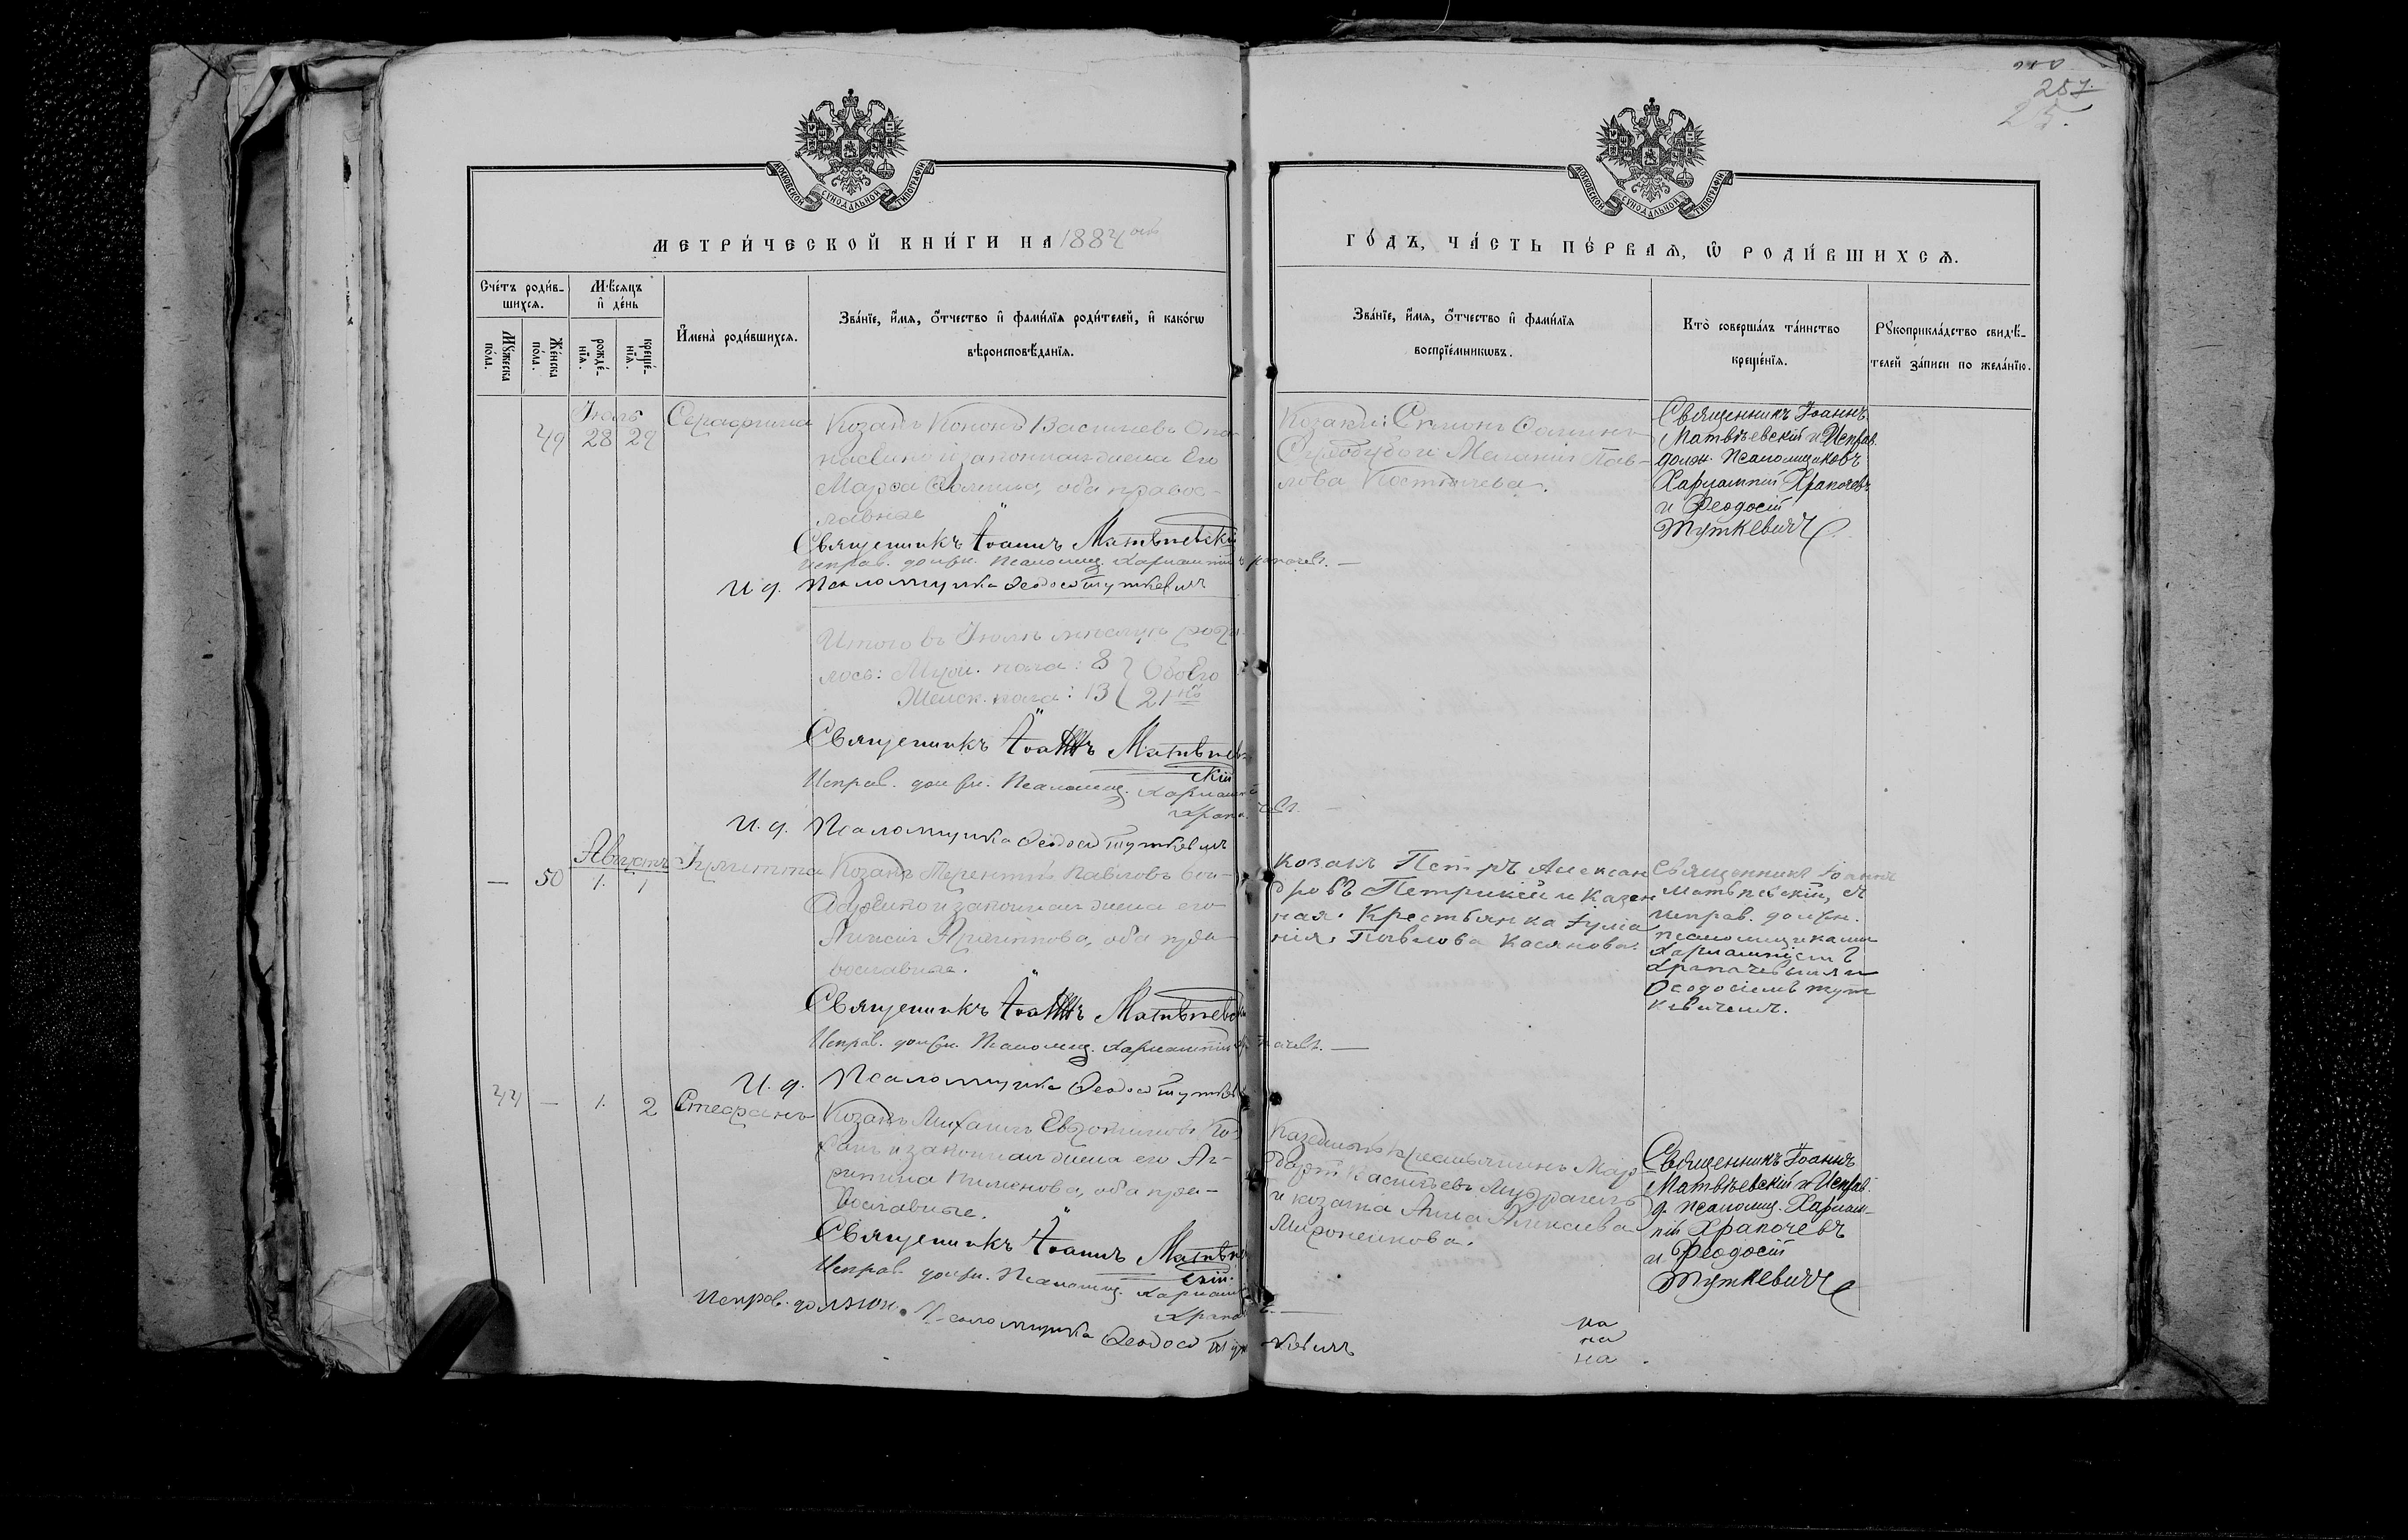 257.
МОСКОВСКОЙ СУНОДАЛЬНОЙ ТИПОГРАФІИ
МОСКОВСКОЙ СУНОДАЛЬНОЙ ТИПОГРАФІИ
МЕТРИ́ЧЕСКОЙ КНИ́ГИ НА 1884
ГО́ДЪ, ЧА́СТЬ ПЕ́РВАѦ, Ѡ҆ РОДИ́ВШИХСѦ.
Сче́тъ роди́в-
шихсѧ.
Мѣ́сяцъ
и҆ де́нь
Мꙋ́жеска
по́ла.
Же́нска
по́ла.
рожде́-
нїѧ.
креще́-
нїѧ.
И҆мена̀ роди́вшихсѧ.
Зва́нїе, и҆́мѧ, ѻ҆́тчество и҆ фами́лїѧ роди́телей, и҆ како́гѡ
вѣроисповѣ́данїѧ.
Зва́нїе, и҆́мѧ, ѻ҆́тчество и҆ фами́лїѧ
воспрїе́мникѡвъ.
Кто̀ соверша́лъ та́инство
креще́нїѧ.
Рꙋкоприкла́дство свидѣ́-
телей за́писи по жела́нїю.
Іюль
49 28 29 Серафима Козакъ Кононъ Васильевъ
и законная жена Его
Марфа, оба правос-
лавные
Священникъ Іоаннъ Матвѣевскій
Исправ. должн. Псаломщ. Харлампій Храпачевъ.
И. д. Псаломщика Феодосій Туткевичъ
Козаки: Симонъ
и Меланія Пав-
лова
Священникъ Іоаннъ
Матвѣевскій и Исправ.
должн. Псаломщиковъ
Харлампій Храпачевъ
и Феодосій
Туткевичъ
Итого въ Іюлѣ мѣсяцѣ роди-
лось: Муж. пола: 8 Обоего
Женск. пола: 13 21
Священникъ Іоаннъ Матвѣев-
скій
Исправ. должн. Псаломщ. Харлампій
Храпачевъ.
И. д. Псаломщика Феодосій Туткевичъ
Августъ
— 50 1. 1 Іулитта Козакъ Терентій Павловъ
и законная жена его
оба пра-
вославные.
Священникъ Іоаннъ Матвѣевскій
Исправ. должн. Псаломщ. Харлампій Храпачевъ.
И. д. Псаломщика Феодосій Туткевичъ
Козакъ Петръ Алексан-
дровъ Петрикѣй и Казен-
ная Крестьянка Іулia-
нія Павлова Касянова.
Священникъ Іоаннъ
Матвѣевскій, съ
исправ. должн.
псаломщиками
Харлампіемъ
Храпачевымъ и
Феодосіемъ Тут-
кевичемъ.
44 — 1. 2 Стефанъ Козакъ Михаилъ Евдокимовъ
и законная жена его Аг-
рипина Пименова, оба пра-
вославные.
Священникъ Іоаннъ Матвѣев-
скій.
Исправ. должн. Псаломщ. Харлампій
Храпачевъ.
Исправ. должн. Псаломщика Феодосій Туткевичъ
Казенный крестьянинъ Мар-
дарій Васильевъ
и козачка Анна Алексѣева
Мироненкова.
Священникъ Іоаннъ
Матвѣевскій и Исправ.
д. Псаломщ. Харлам-
пій Храпачевъ
и Феодосій
Туткевичъ
на
на
на